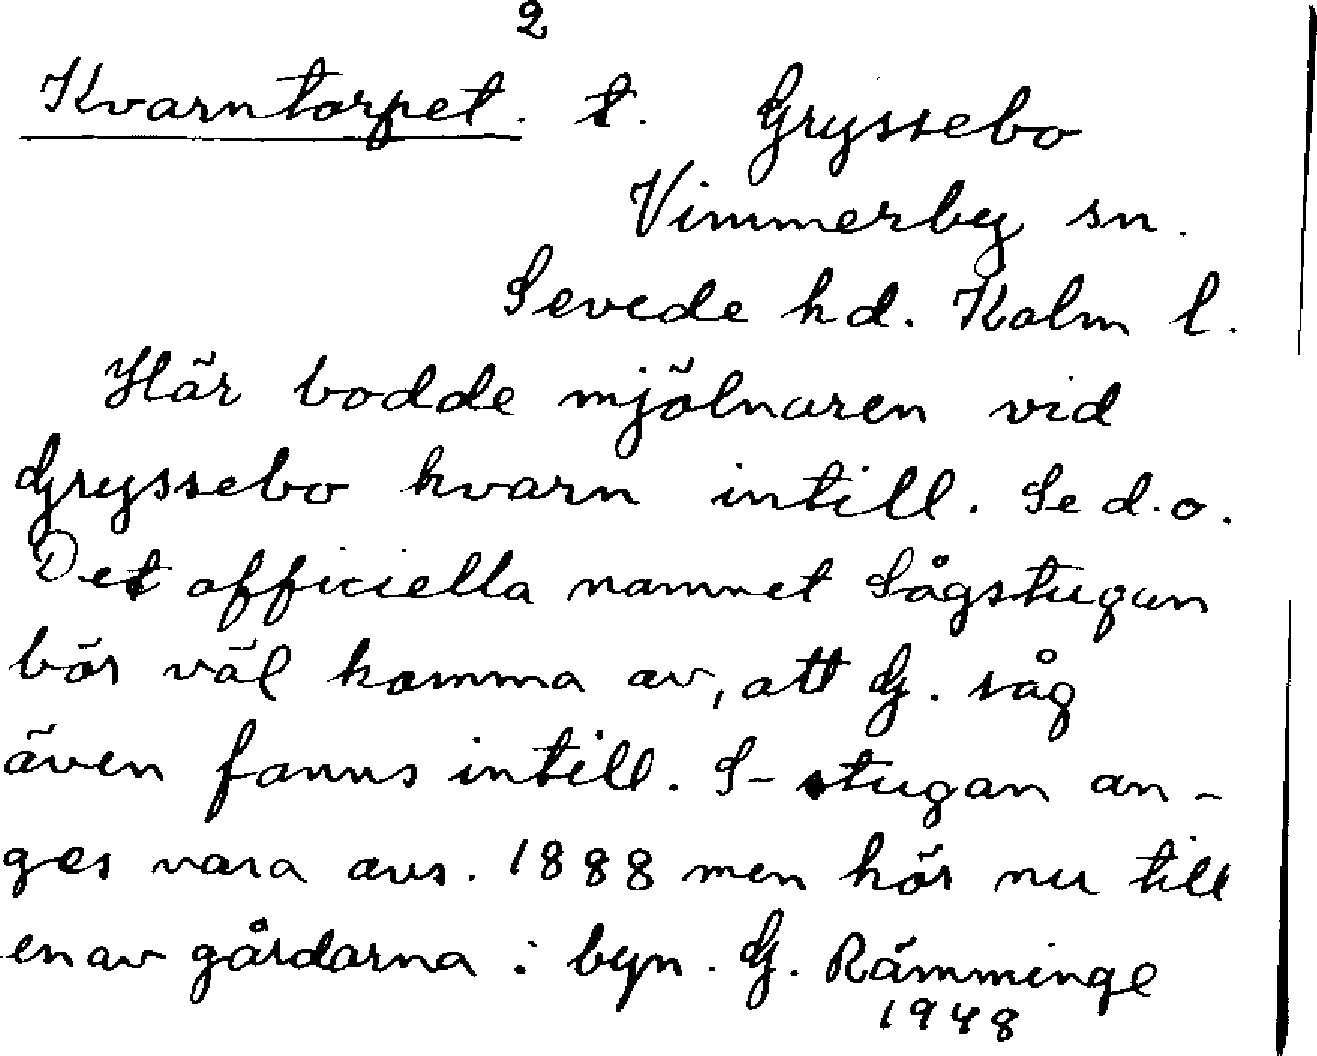 2
Kvarntorpet. t. Gryssebo
Vimmerby sn.
Sevede hd. Kalm l.
Här bodde mjölnaren vid
Gryssebo kvarn intill. Se d.o.
Det officiella namnet Sågstugan
bör väl komma av, att G. såg
även fanns intill. S-stugan an-
ges vara avs. 1888 men hör nu till
en av gårdarna i byn. G. Rämminge
1948